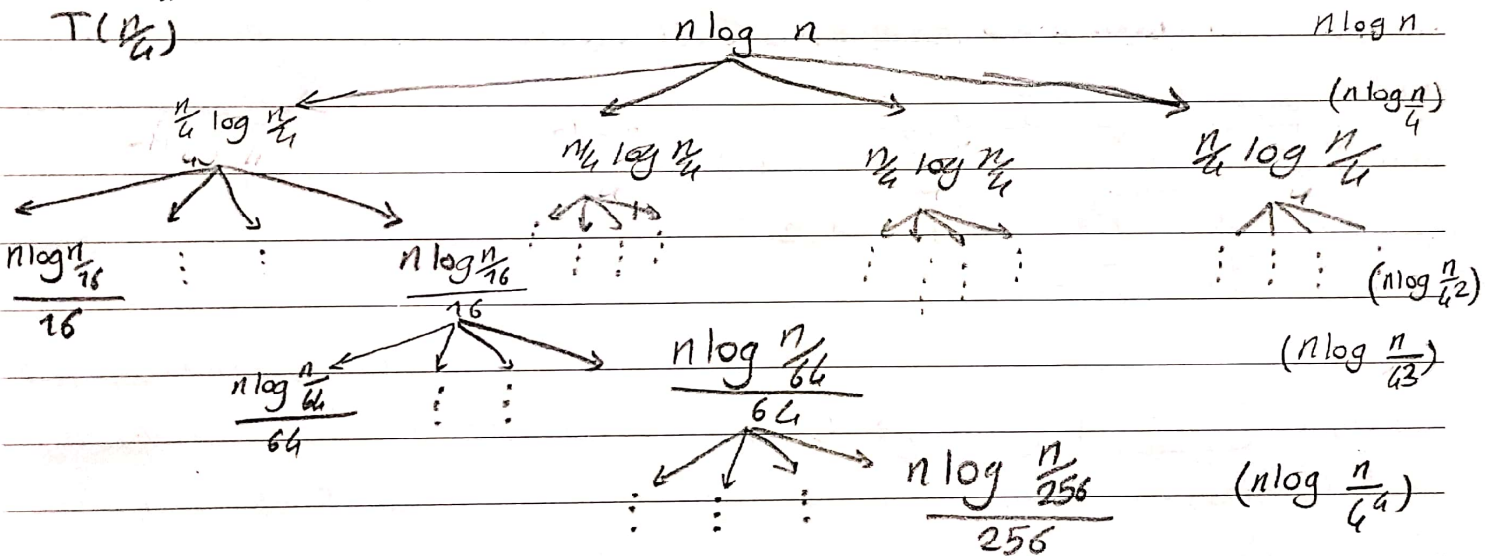 T(n/4) n log n n log n
(n log n/4)
n/4 log n/4 n/4 log n/4 n/4 log n/4 n/4 log n/4
n log n/16 / 16 n log n/16 / 16 (n log n/4^2)
n log n/64 / 64 n log n/64 / 64 (n log n/4^3)
n log n/256 / 256 (n log n/4^4)